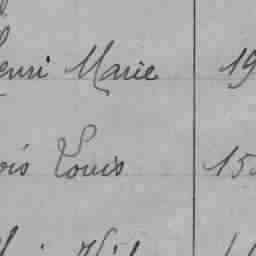 enri Marie 19
ois Louis 15